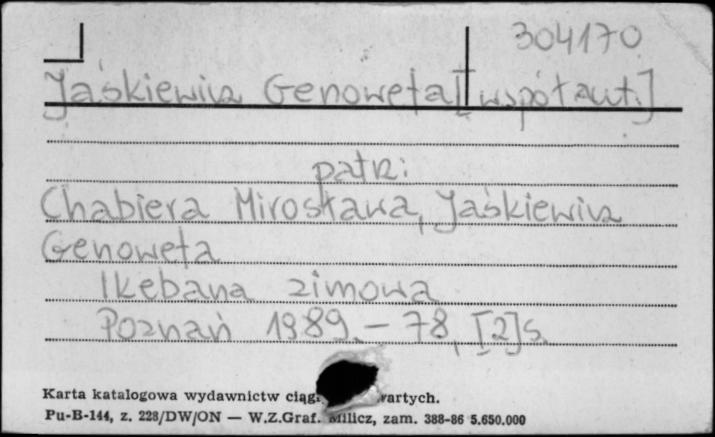 304170
Jaśkiewicz Genowefa [współaut.]
patrz:
Chabiera Mirosława, Jaśkiewicz
Genowefa
Ikebana zimowa
Poznań 1989. – 78, [2] s.
Karta katalogowa wydawnictw
Pu-B-144, z. 228/DW/ON — W.Z.Graf. Milicz, zam. 388-86 5.650.000